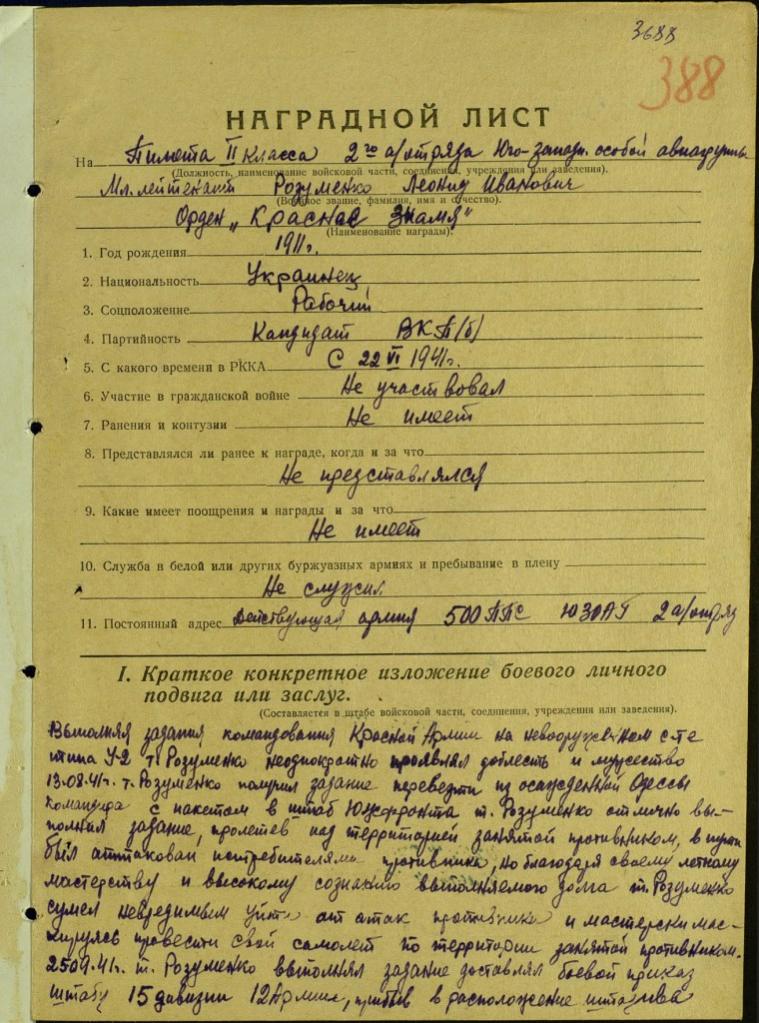 3688
388
НАГРАДНОЙ ЛИСТ
На Пилота II класса 2го а/отряда Юго-западн. особой авиагруппы
(Должность, наименование войсковой части, соединения, учреждения или заведения).
Мл. лейтенант Розуменко Леонид Иванович
(Воинское звание, фамилия, имя и отчество).
Орден „Красное Знамя"
(Наименование награды).
1. Год рождения 1911г.
2. Национальность Украинец
3. Соцположение Рабочий
4. Партийность Кандидат ВКП(б)
5. С какого времени в РККА С 22 VI 1941г.
6. Участие в гражданской войне Не участвовал
7. Ранения и контузии Не имеет
8. Представлялся ли ранее к награде, когда и за что
Не представлялся
9. Какие имеет поощрения и награды и за что
Не имеет
10. Служба в белой или других буржуазных армиях и пребывание в плену
Не служил
11. Постоянный адрес Действующая армия 500 ППС ЮЗОАГ 2 а/отряд
I. Краткое конкретное изложение боевого личного
подвига или заслуг.
(Составляется в штабе войсковой части, соединения, учреждения или заведения).
Выполняя задания командования Красной Армии на невооруженном с-те
типа У-2 т. Розуменко неоднократно проявлял доблесть и мужество
13.08.41г. т. Розуменко получил задание перевезти из осажденной Одессы
командира с пакетом в штаб Южфронта т. Розуменко отлично вы-
полнил задание, пролетев над территорией занятой противником, в пути
был аттакован истребителями противника, но благодаря своему летному
мастерству и высокому сознанию выполняемого долга т. Розуменко
сумел невредимым уйти от атак противника и мастерски мас-
кируясь провести свой самолет по территории занятой противником.
25.09.41г. т. Розуменко выполнял задание доставлял боевой приказ
штабу 15 дивизии 12 Армии, прибыв в расположение